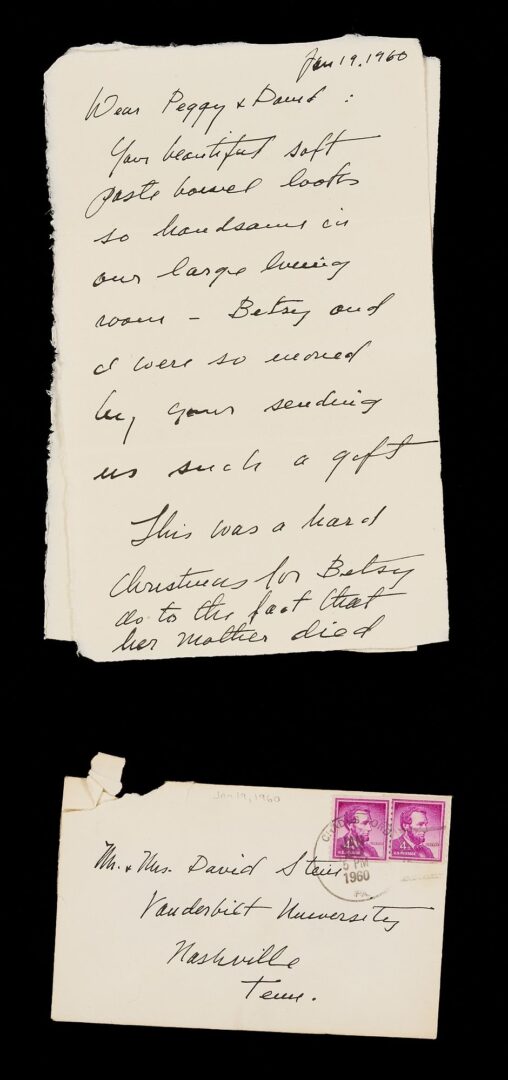 Jan 19, 1960
Dear Peggy & David :
Your beautiful soft
paste bowl looks
so handsome in
our large living
room – Betsy and
I were so moved
by your sending
us such a gift
This was a hard
Christmas for Betsy
do to the fact that
her mother died
Jan 19, 1960
JAN
5 PM
1960
PA.
4¢
Mr. & Mrs. David Stein
Vanderbilt University
Nashville
Tenn.